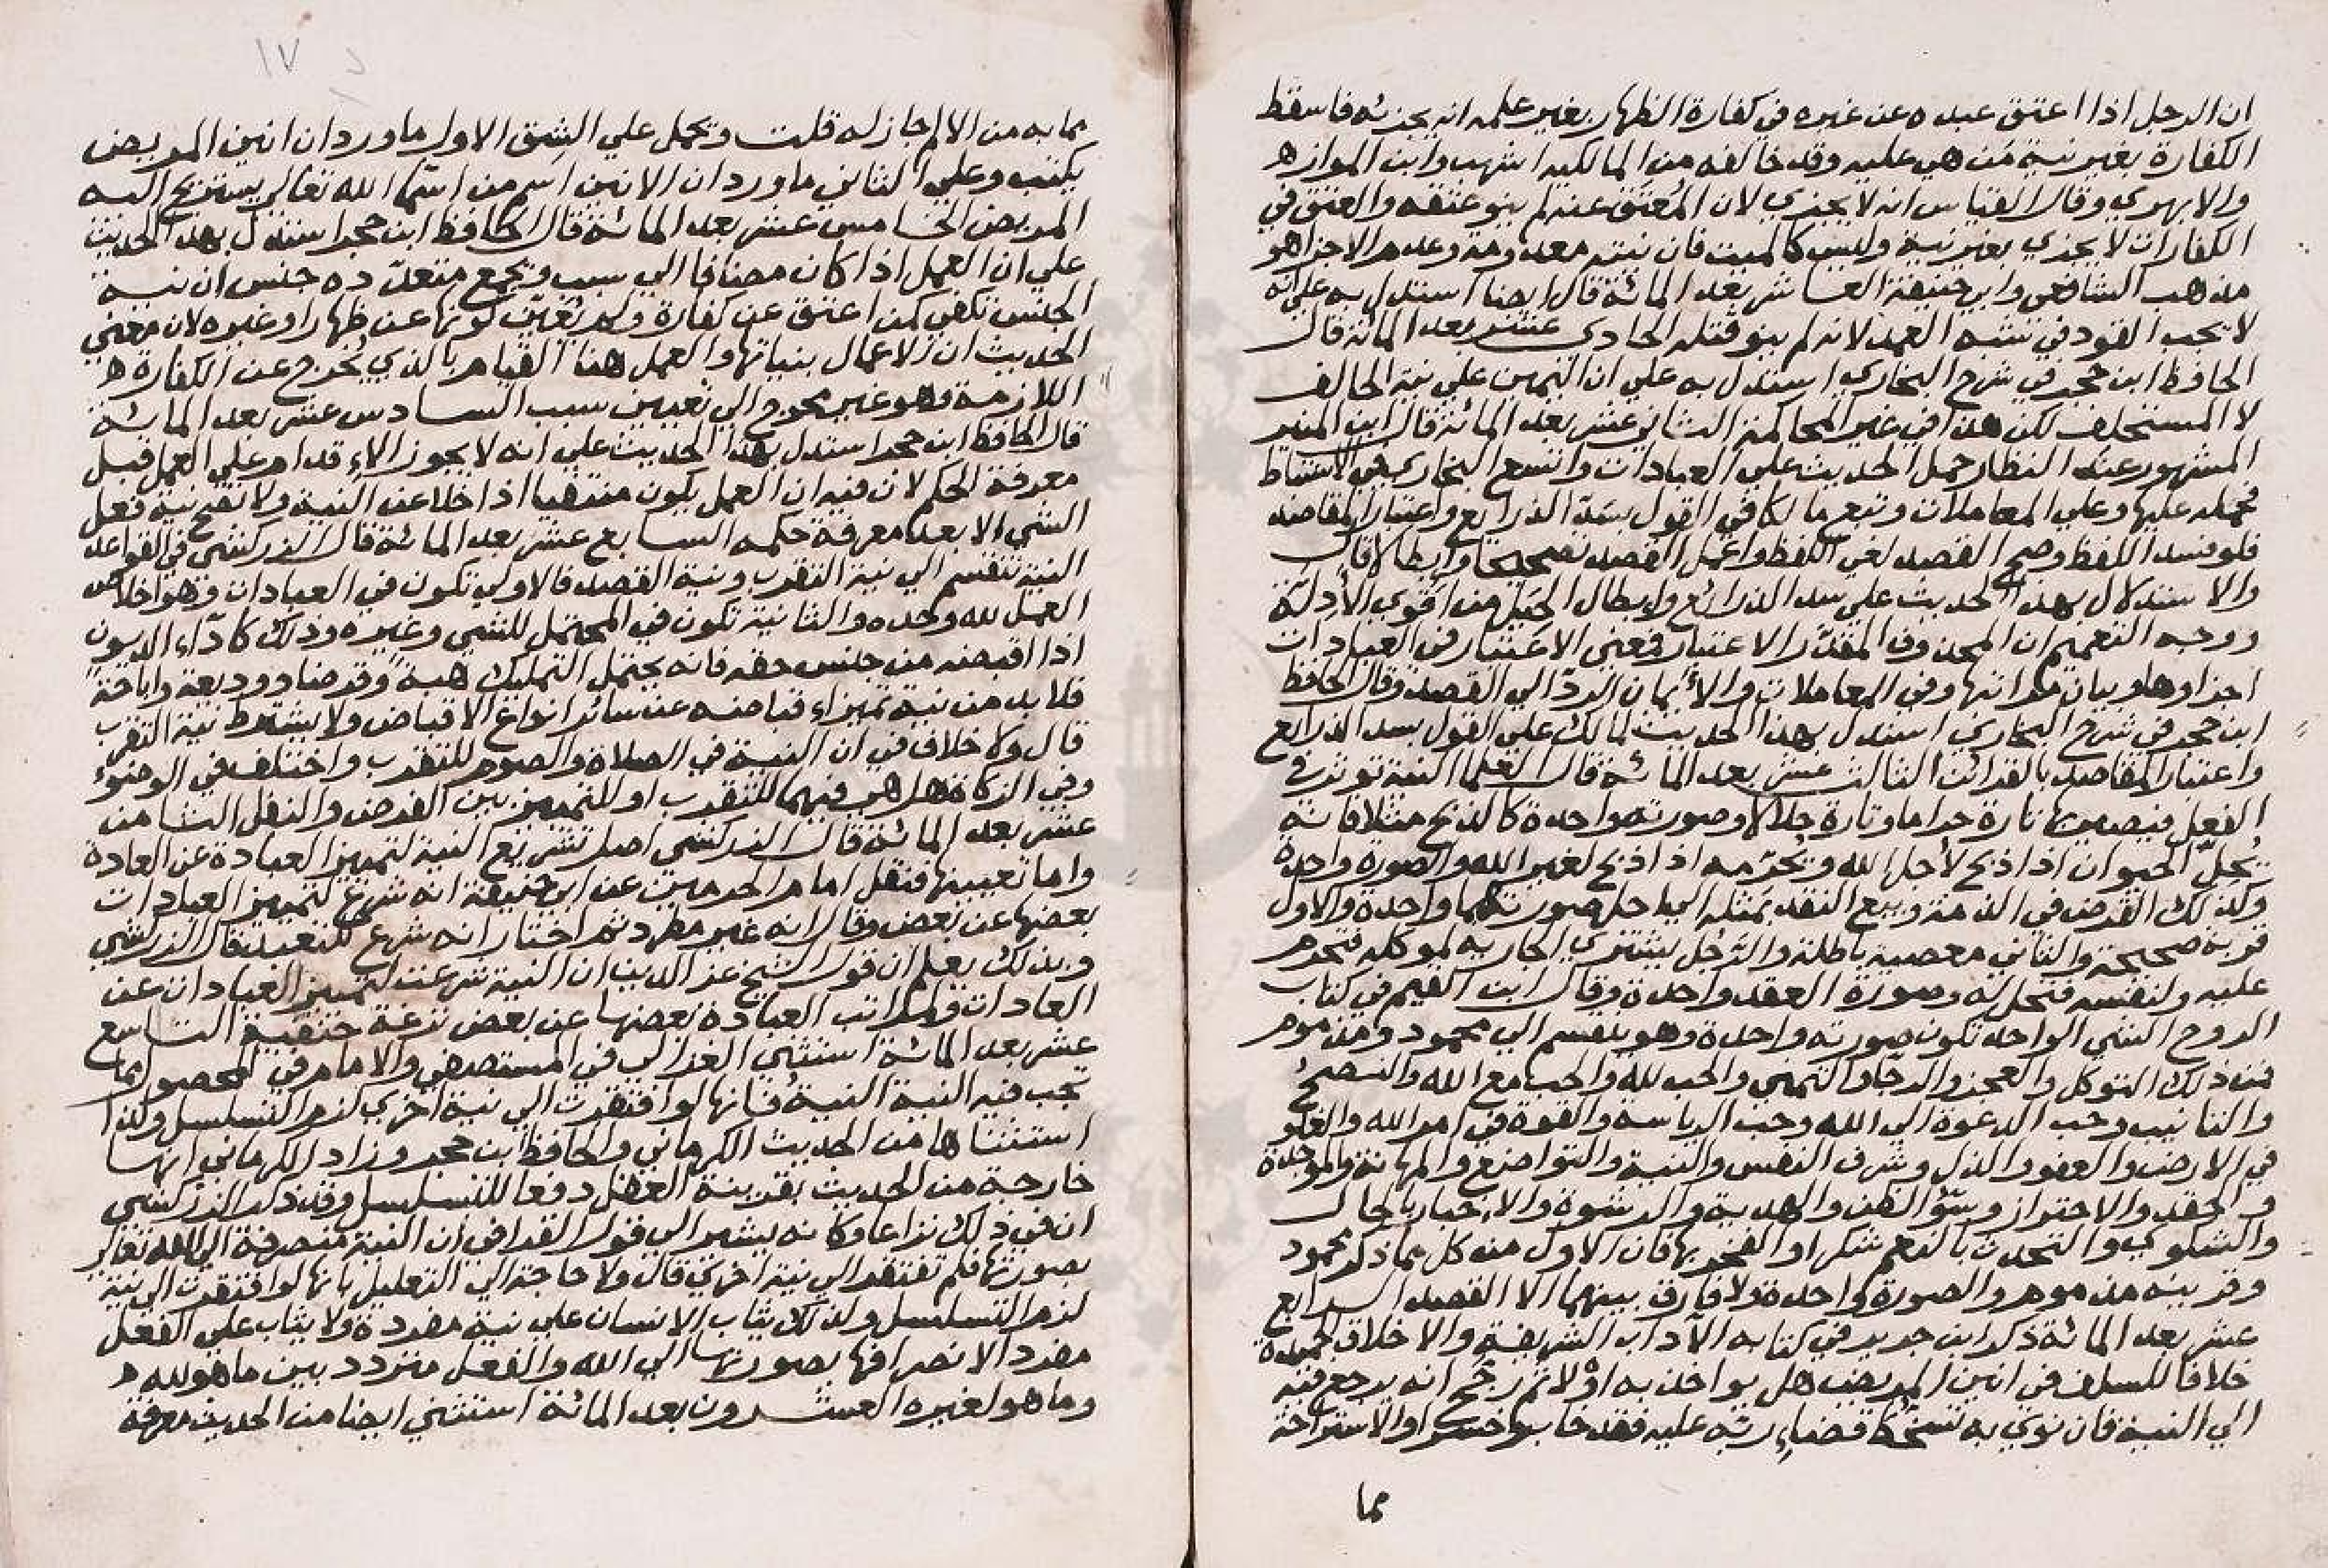 ان الرجل اذا اعتق عبده عن غيره في كفارة الظهار بغير علمه انه يجزئه فاسقط
الكفارة بغير نية من هي عليه وقد خالفه من المالكيه اشهب وابن المواز
والابهري وقال القياس انه لا يجزي لان المُعتَق عنه لم ينو عتقه والعتق في
الكفارات لا يجزي بغير نية وليس كالميت فان نيته معدومة وعدم الاجزا هو
مذهب الشافعي وابي حنيفة العاشر بعد المائة قال ايضا استدل به علي انه
لا يجب القود في شبه العمد لانه لم ينو قتله الحادي عشر بعد المائة قال
الحافظ ابن حجر في شرح البخاري استدل به علي ان اليمين علي نية الحالف
لا المستحلف لكن هذا في غير المحاكمة الثاني عشر بعد المائة قال ابن المنير
المشهور عند النظار حمل الحديث علي العبادات واتسع البخاري في الاستنباط
فحمله عليها وعلي المعاملات وتبع مالكا في القول بسَدّ الذرائع واعتبار المقاصد
فلو فسد اللفظ وصح القصد لغي اللفظ واعمل القصد تصحيحا وابطالا قال
والاستدلال بهذا الحديث علي سد الذرائع وابطال الحيل من اقوي الأدلة
ووجه التعميم ان المحذوف المقدّر الاعتبار فمعني الاعتبار في العبادات
اجزاوها وبيان مراتبها وفي المعاملات والأيمان الردّ الي القصد وقال الحافظ
ابن حجر في شرح البخاري استدل بهذا الحديث لمالك علي القول بسد الذرائع
واعتبار المقاصد بالقرائن الثالث عشر بعد المائة قال العلما النية توثر في
الفعل فيصير بها تارة حراما وتارة حلالا وصورته واحدة كالذبح مثلا فانه
يُحلّ الحيوان اذا ذبح لأجل الله ويُحرّمه اذا ذبح لغير الله والصورة واحدة
وكذلك القرض في الذمة وبيع النقد بمثله الي اجل صورتهما واحدة والاول
قربة صحيحة والثاني معصية باطلة والرّجل يشتري الجارية لموكله فتحرم
عليه ولنفسه فتحل له وصورة العقد واحدة وقال ابن القيم في كتاب
الروح الشي الواحد تكون صورته واحدة وهو ينقسم الي محمود ومذموم
فمن ذلك التوكل والعجز والرجا والتمني والحب لله والحب مع الله والنصحُ
والتانيب وحب الدعوة الي الله وحب الرياسة والقوة في امر الله والعلو
في الارض والعفو والذل وشرف النفس والتيه والتواضع والمهانة والموجدة
والحقد والاحتراز وسؤ الظن والهدية والرشوة والاخبار بالحال
والشكوي والتحدث بالنعم شكرا والفخر بها فان الاول من كل ما ذكر محمود
وقرينه مذموم والصورة واحدة ولا فارق بينهما الا القصد الرابع
عشر بعد المائة ذكر ابن جرير في كتابه الآداب الشريفة والاخلاق الحميدة
خلافا للسلف في انين المريض هل يواخذ به اوْ لا ثم رجح انه يرجع فيه
الي النية فان نوي به تسخّطا قضاء ربه عليه فقد خاب وخسر او الاستراحة
مما
١٧
مما به من الالم جاز له قلت ويحمل علي الشق الاول ما ورد ان انين المريض
يكتب وعلي الثاني ما ورد ان الانين اسم من اسما الله تعالي يستريح اليه
المريض الخامس عشر بعد المائة قال الحافظ ابن حجر استدل بهذا الحديث
علي ان العمل اذا كان مضافا الي سبب ويجمع متعدّده جنس ان نية
الجنس تكفي كمن اعتق عن كفارة ولم يُعيّن كونها عن ظهار او غيره لان معني
الحديث ان الاعمال بنياتها والعمل هنا القيام بالذي يُخرج عن الكفارة
اللازمة وهو غير محوج الي تعيين سبب السادس عشر بعد المائة
قال الحافظ ابن حجر استدل بهذا الحديث علي انه لا يجوز الاقدام علي العمل قبل
معرفة الحكم لان فيه ان العمل يكون منتفيا اذا خلا عن النية ولا تصح نية فعل
الشيء الا بعد معرفة حكمه السابع عشر بعد المائة قال الزركشي في القواعد
النية تنقسم الي نية التقرب ونية القصد فالاولي تكون في العبادات وهو اخلاص
العمل لله وحده والثانية تكون في المحتمل للشي وغيره وذلك كأداء الديون
اذا اقبضه من جنس حقه فانه يحتمل التمليك هبة وقرضا ووديعة واباحة
فلا بد من نية تميز اقباضه عن سائر انواع الاقباض ولا يشترط نية التقرب
قال ولا خلاف في ان النية في الصلاة والصوم للتقرب واختلف في الوضوء
وفي الزكاة هل هي فيهما للتقرب او للتمييز بين الفرض والنفل الثامن
عشر بعد المائة قال الزركشي اصل تشريع النية لتمييز العبادة عن العادة
واما تعيينها فنقل امام الحرمين عن ابي حنيفة انه شرع لتمييز العبادات
بعضها عن بعض وقال انه غير مطرد ثم اختار انه شرع للتعبد قال الزركشي
وبذلك يعلم ان قول الشيخ عز الدين ان النية شرعت لتمييز العبادات عن
العادات ومراتب العبادة بعضها عن بعض نزعة حنفية التاسع
عشر بعد المائة استثني الغزالي في المستصفي والامام في المحصول مما
تجب فيه النية النية فانها لو افتقرت الي نية اخري لزم التسلسل وكذا
استثناها من الحديث الكرماني والحافظ ابن حجر وزاد الكرماني انها
خارجة من الحديث بقرينة العقل دفعا للتسلسل وقد ذكر الزركشي
ان في ذلك نزاعا وكانه يشير الي قول القرافي ان النية منصرفة الي الله تعالي
بصورتها فلم تفتقر الي نية اخري قال ولا حاجة الي التعليل بانها لو افتقرت الي نية
لزم التسلسل ولذلك يثاب الانسان علي نية مفردة ولا يثاب علي الفعل
مفردا لانصرافها بصورتها الي الله والفعل متردد بين ما هو لله
وما هو لغيره العشرون بعد المائة استثني ايضا من الحديث معرفة